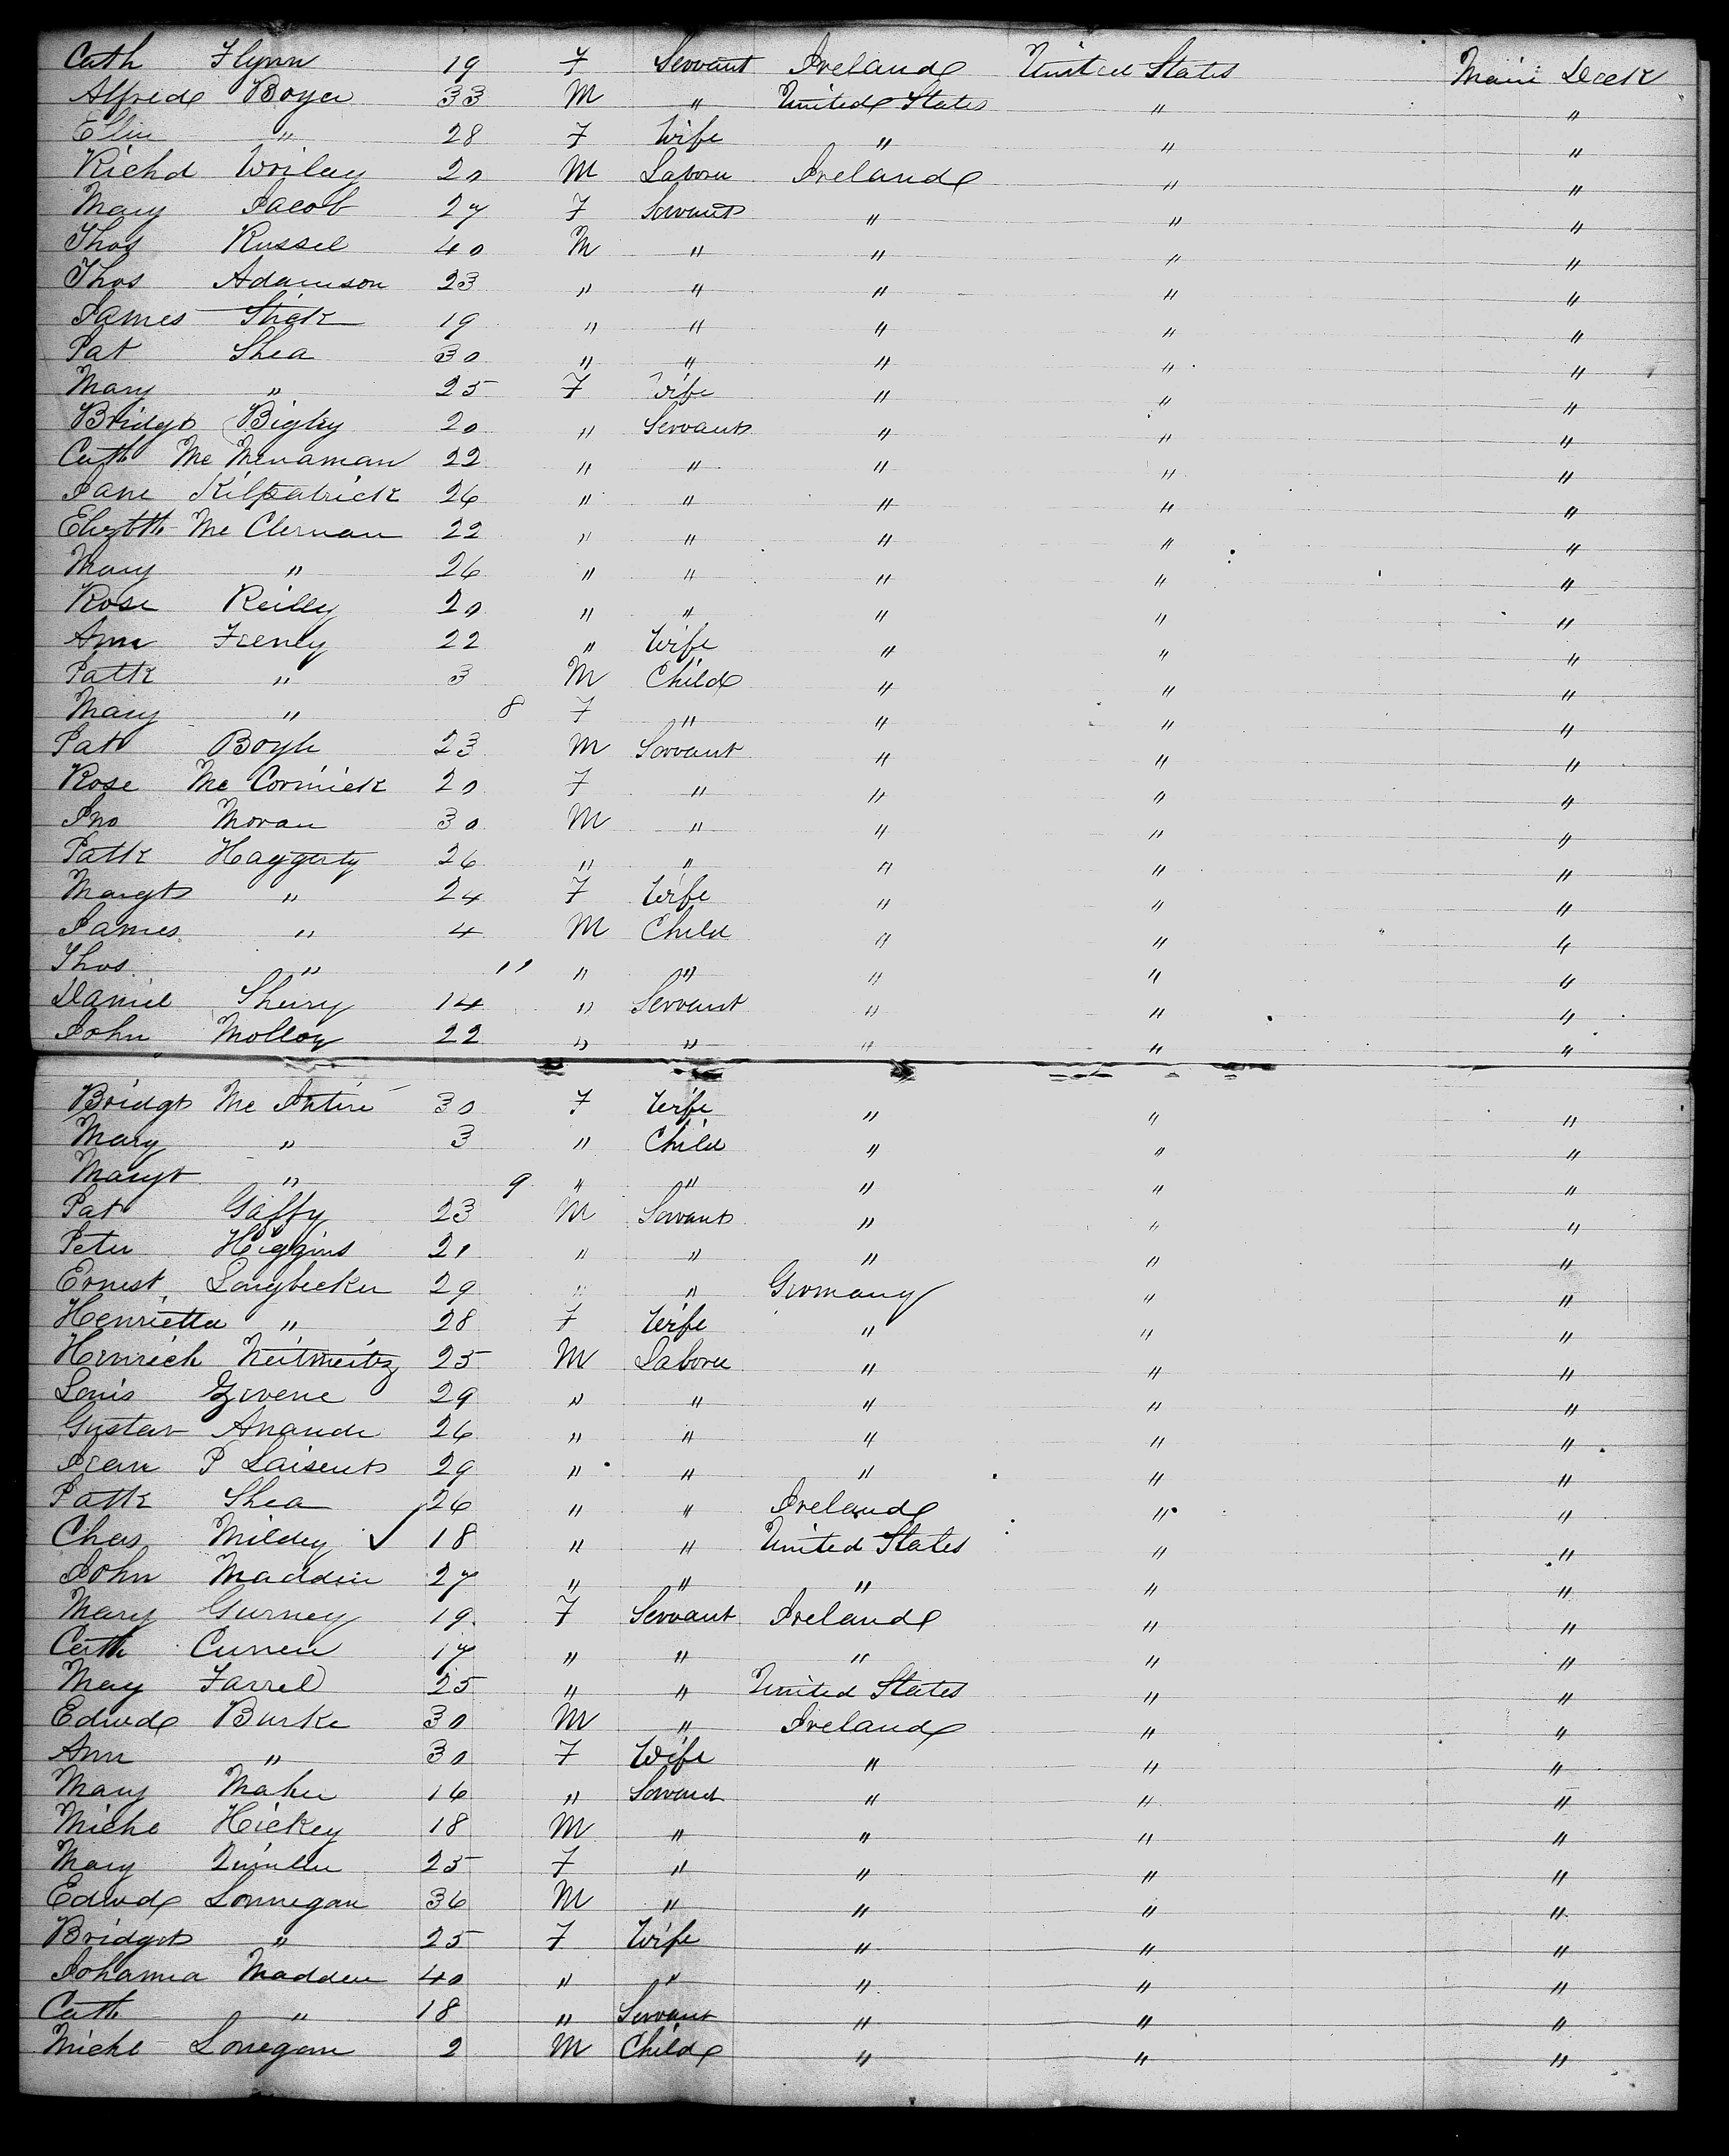 Cath Flynn 19 F Servant Ireland United States Main Deck
Alfred Boyer 33 M " United States " "
Elin " 28 F Wife " " "
Richd Wriley 20 M Labour Ireland " "
Mary Jacob 27 F Servant " " "
Thos Russel 40 M " " " "
Thos Adamson 23 " " " " "
James Stick 19 " " " " "
Pat Shea 30 " " " " "
Mary " 25 F Wife " " "
Bridgt Bigley 20 " Servant " " "
Cath Mc Menaman 22 " " " " "
Jane Kilpatrick 26 " " " " "
Elizbth Mc Clernan 22 " " " " "
Mary " 26 " " " " "
Rose Reilly 20 " " " " "
Ann Feenly 22 " Wife " " "
Patk " 3 M Child " " "
Mary " 8 F " " " "
Pat Boyle 23 M Servant " " "
Rose Mc Cormick 20 F " " " "
Jno Moran 30 M " " " "
Patk Haggerty 26 " " " " "
Margt " 24 F Wife " " "
James " 4 M Child " " "
Thos " 11 " " " " "
Daniel Sheiry 14 " Servant " " "
John Molloy 22 " " " " "
Bridgt Mc Intire 30 F Wife " " "
Mary " 3 " Child " " "
Margt " 9 " " " " "
Pat Gaffy 23 M Servant " " "
Peter Higgins 21 " " " " "
Ernest Langbecker 29 " " Germany " "
Henrietta " 28 F Wife " " "
Heinrich 25 M Labour " " "
Louis 29 " " " " "
Gustav 26 " " " " "
Jean P 29 " " " " "
Patk Shea 26 " " Ireland " "
Chas Mildey ✓ 18 " " United States " "
John Madden 27 " " " " "
Mary Gurney 19 F Servant Ireland " "
Cath Curren 17 " " " " "
May Farrel 25 " " United States " "
Edwd Burke 30 M " Ireland " "
Ann " 30 F Wife " " "
Mary Maher 16 " Servant " " "
Michl Hickey 18 M " " " "
Mary Quinlan 25 F " " " "
Edwd Lonnegan 36 M " " " "
Bridget " 25 F Wife " " "
Johanna Madden 40 " " " " "
Cath " 18 " Servant " " "
Michl Lonegan 2 M Child " " "